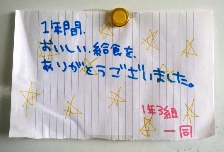 1年間、
おいしい給食を、
ありがとうございました。
1年3組
一同